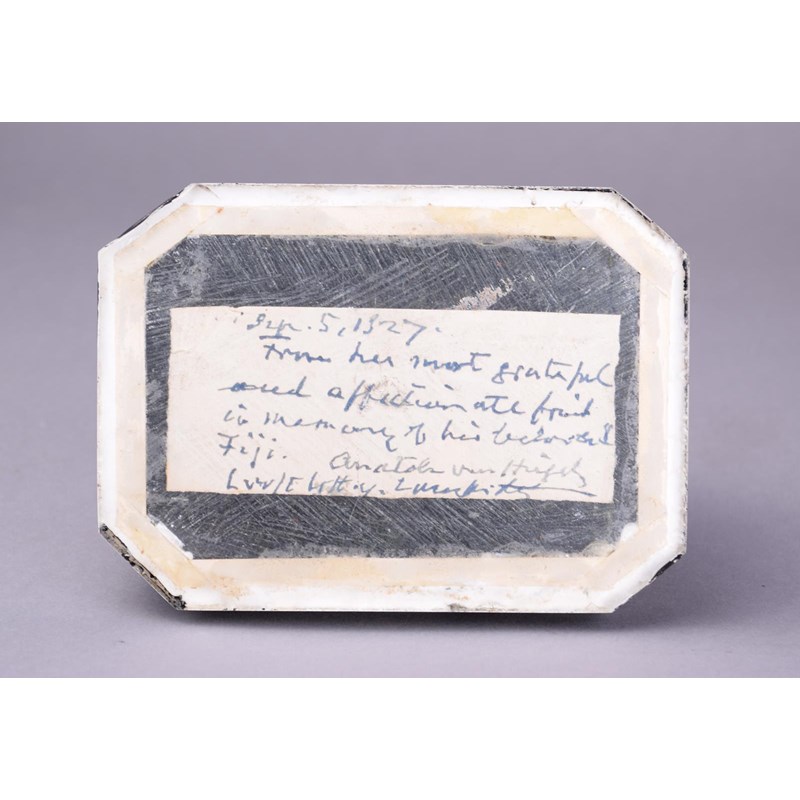 Sep. 5, 1927.
From her most grateful
and affectionate friend
in memory of his beloved
Fiji. Anatole von Hügel